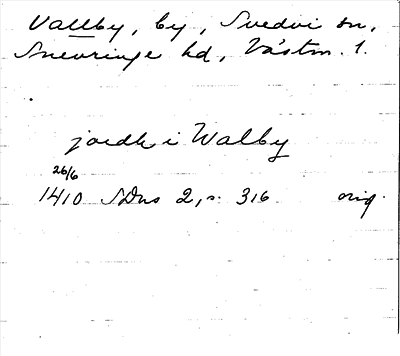 Vallby, by, Svedvi sn,
Snevringe hd, Västm. l.
jordh i Walby
26/6
1410 SDns 2, s. 316 orig.